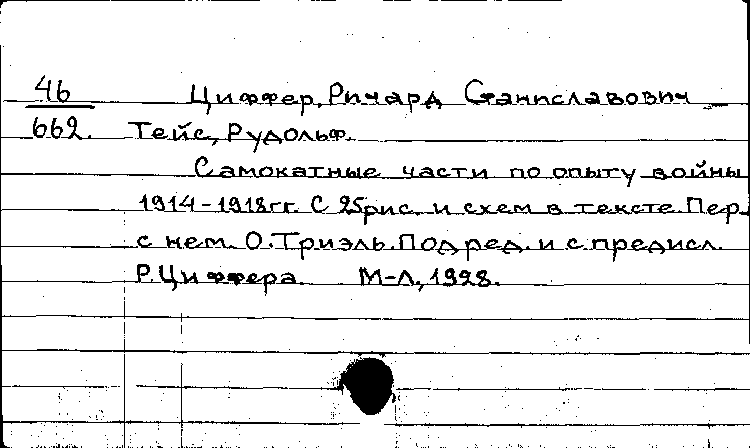 46 Циффер, Ричард Станиславович
662. Тейс, Рудольф.
Самокатные части по опыту войны
1914-1918гг. С 25рис. и схем в тексте. Пер.
с нем. О.Триэль. Под ред. и с предисл.
Р.Циффера. М-Л, 1928.